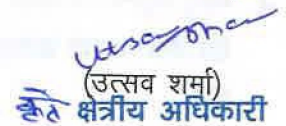 (उत्सव शर्मा)
कृते क्षेत्रीय अधिकारी